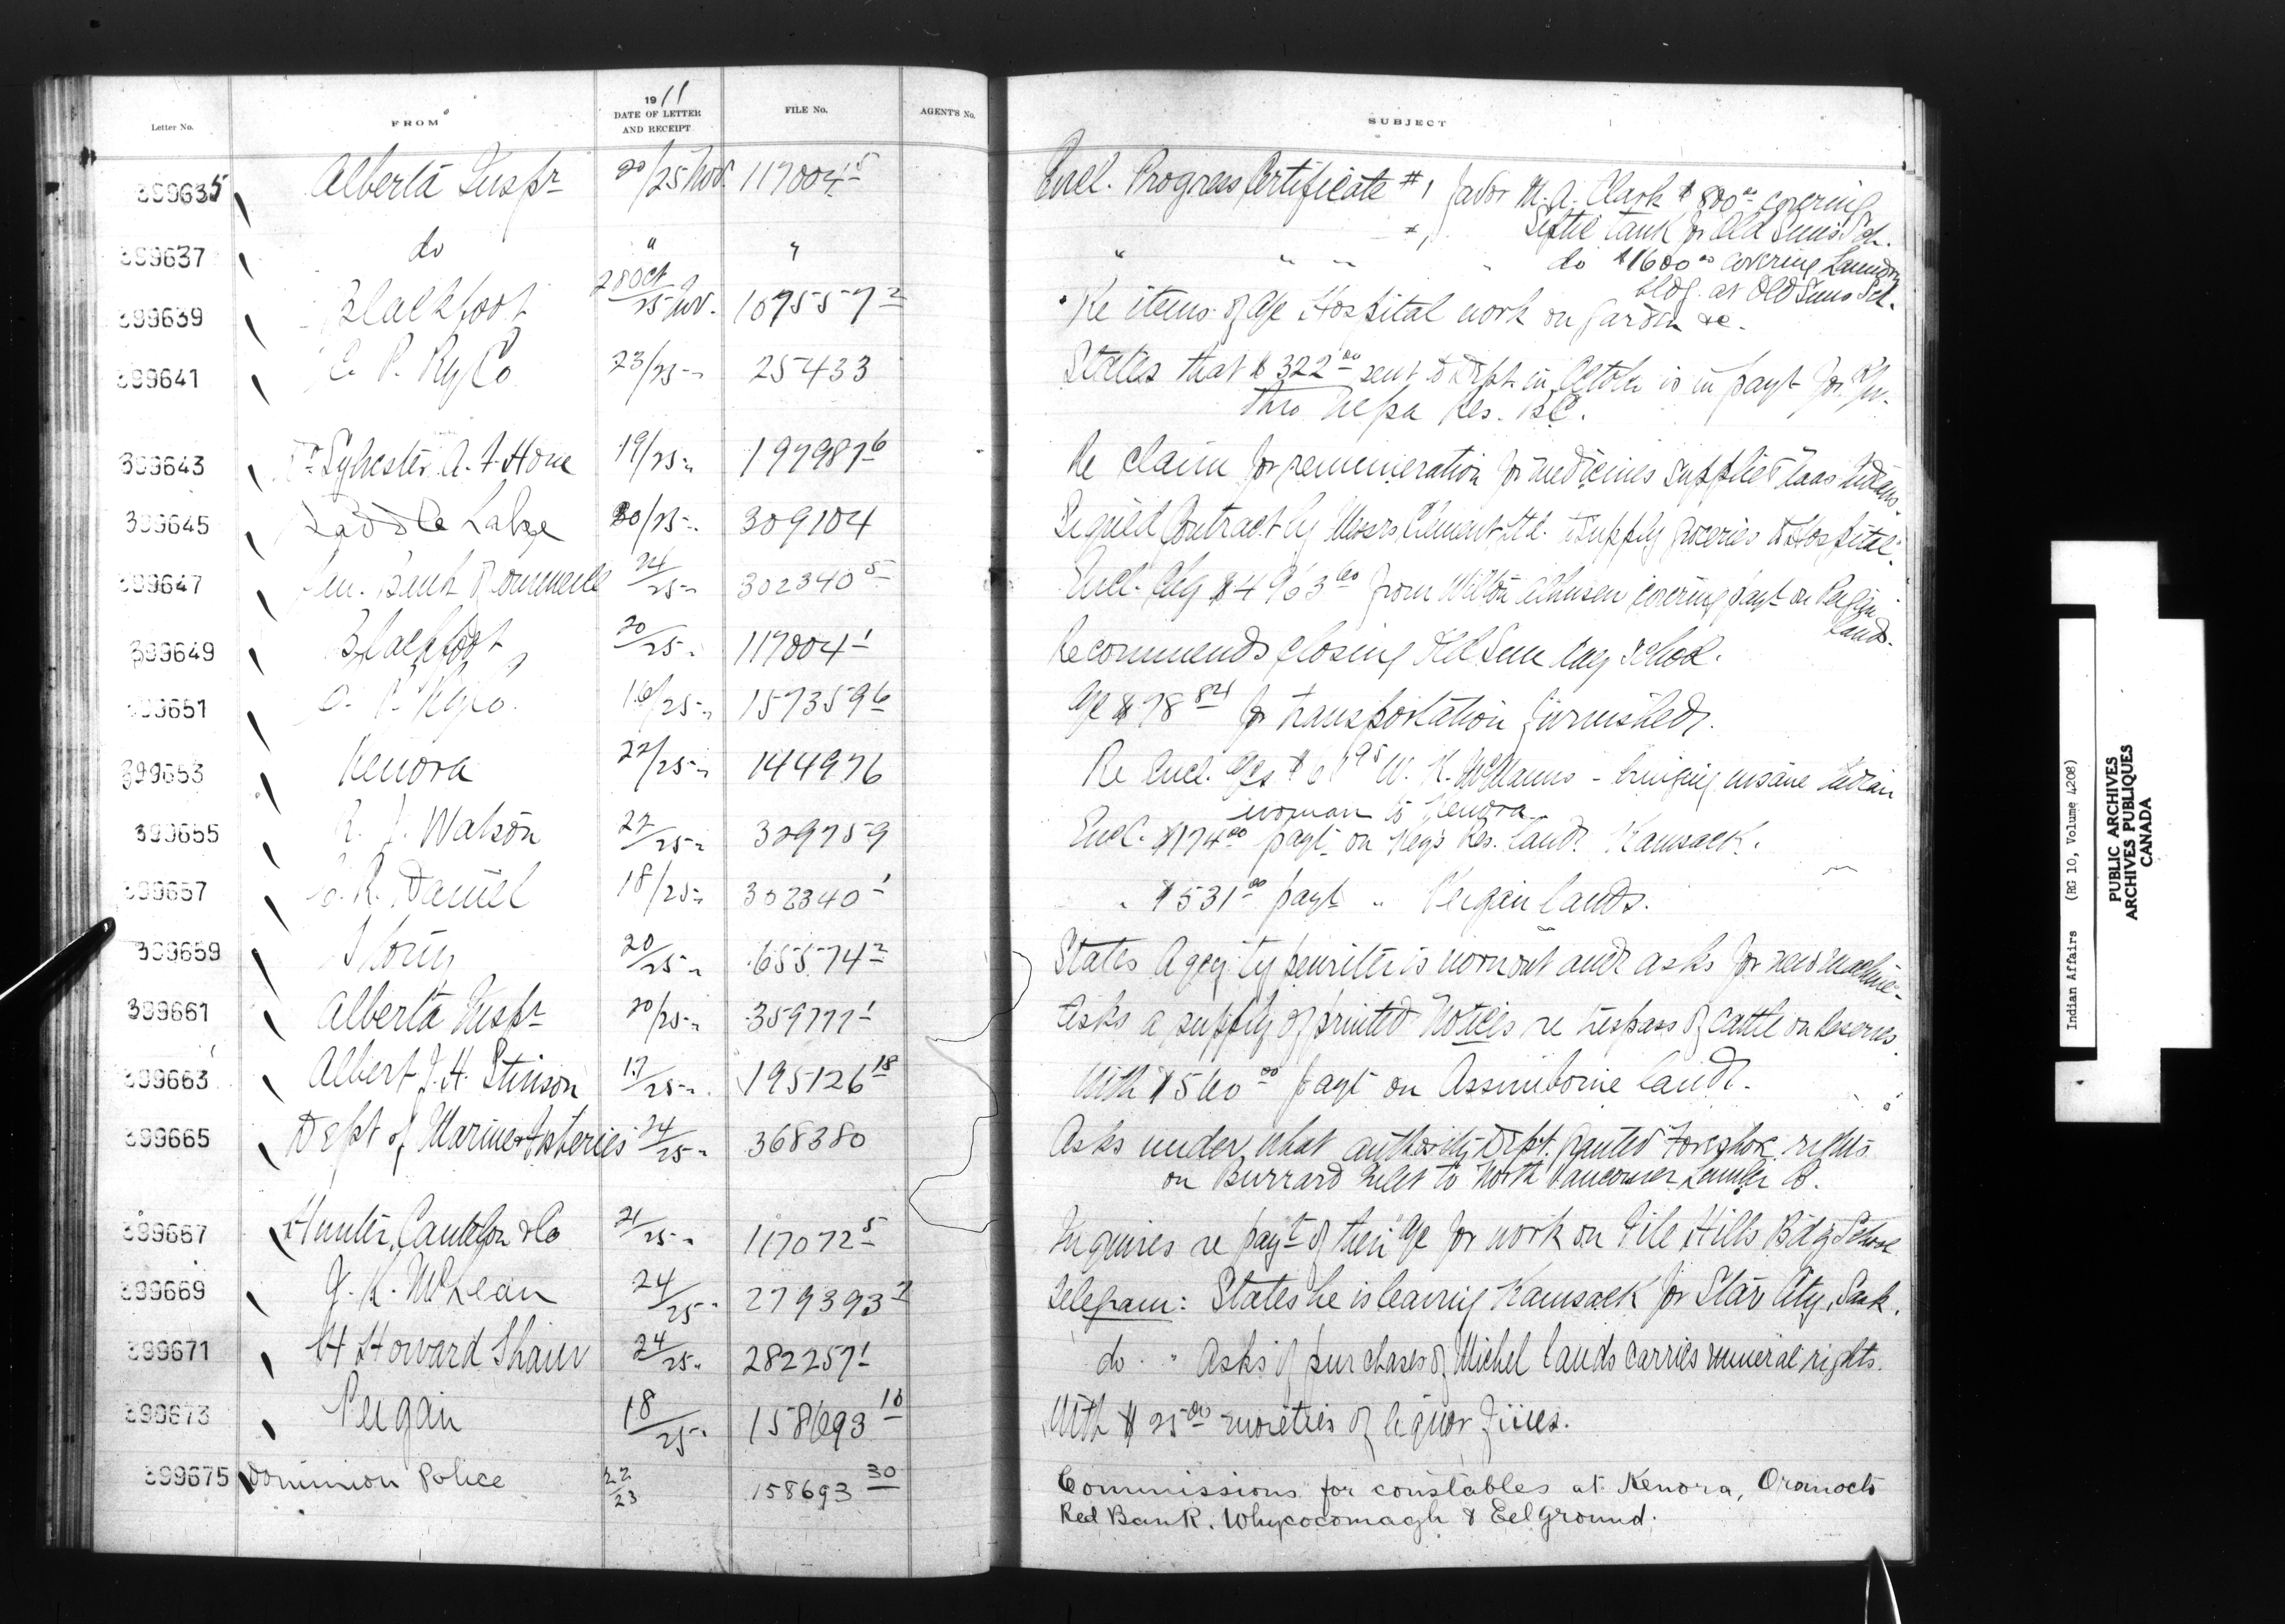 1911
Letter No. FROM DATE OF LETTER AND RECEIPT FILE No. AGENT'S No. SUBJECT
399635 Alberta Inspr 20/25 Nov. 117004-5 Encl. Progress Certificate #1 favor M. A. Clark $800.00 covering
Septic Tank for Old Suns Sch.
399637 do " " " " " " do $1600.00 covering Laundry
bldg. at Old Suns Sch.
399639 Blackfoot 28 Oct/25 Nov. 107557-2 Re items of a/c Hospital work on garden &c.
399641 C. P. Ry Co 23/25 " 25433 States that $322.00 sent to Dept. in is in payt for R/W
thro Nepa Res. B.C.
399643 Dr Sylvester A. F. Hone 19/25 " 197987-6 Re claim for remuneration for medicines supplied Indians.
399645 Saddle Lake 20/25 " 309104 Signed Contract by Messrs Clement Ltd. to supply groceries to Hospital.
399647 Bank Commerce 24/25 " 302340-5 Encl. chq $4963.60 from covering payt on Peigan
lands.
399649 Blackfoot 20/25 " 117004-1 Recommends closing Old Sun Day School.
399651 C. P. Ry Co. 16/25 " 157359-6 a/c $78.84 for transportation furnished.
399653 Kenora 22/25 " 144976 Re Encl. a/cs W. K. McManus - bringing insane Indian
woman to Kenora.
399655 Watson 22/25 " 329759 Encl. $174.00 payt on Key's Res. land. Kamsack.
399657 R. Daniel 18/25 " 302340-1 " $531.00 payt " Peigan lands.
399659 Stony 20/25 " 65574-2 States Agcy typewriter is worn out and asks for new machine.
399661 Alberta Inspr 20/25 " 359777-1 Asks a supply of printed Notices re trespass of cattle on Reserves.
399663 Albert J. H. Stinson 17/25 " 195126-18 With $560.00 payt on Assiniboine land.
399665 Dept of Marine & Fisheries 24/25 " 368380 Asks under what authority Dept. granted foreshore rights
on Burrard Inlet to North Vancouver Lumber Co.
399667 Hunter, Cantelon & Co 21/25 " 117072-5 Inquires re payt of their a/c for work on File Hills Bdg School
399669 J. K. McLean 24/25 " 279393-7 Telegram: States he is leaving Kamsack for Star City, Sask.
399671 H Howard Shaw 24/25 " 282257-1 do " Asks if purchases of Michel lands carries mineral rights.
399673 Peigan 18/25 " 158693-10 With $25.00 moieties of liquor fines.
399675 Dominion Police 22/23 158693-30 Commissions for constables at Kenora, Oromocto
Red Bank, Whycocomagh & Eel Ground.
Indian Affairs (RG 10, Volume 4208)
PUBLIC ARCHIVES
ARCHIVES PUBLIQUES
CANADA